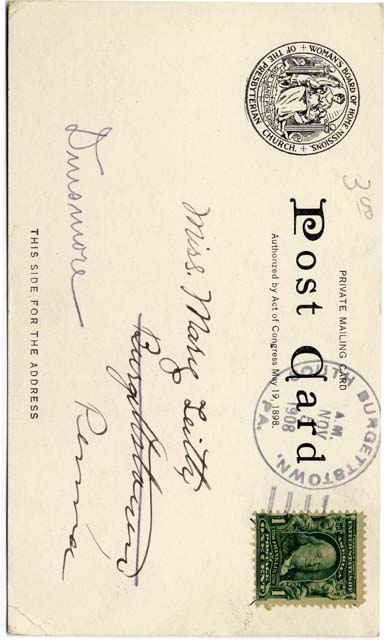 WOMAN'S BOARD OF HOME MISSIONS. + OF THE PRESBYTERIAN CHURCH. +
3.00
PRIVATE MAILING CARD
Post Card
Authorized by Act of Congress May 19, 1898.
SOUTH BURGETTSTOWN, PA.
NOV
A.M.
1908
Miss. Mary Leitly
Burgettstown
Dinsmore
Penna
THIS SIDE FOR THE ADDRESS